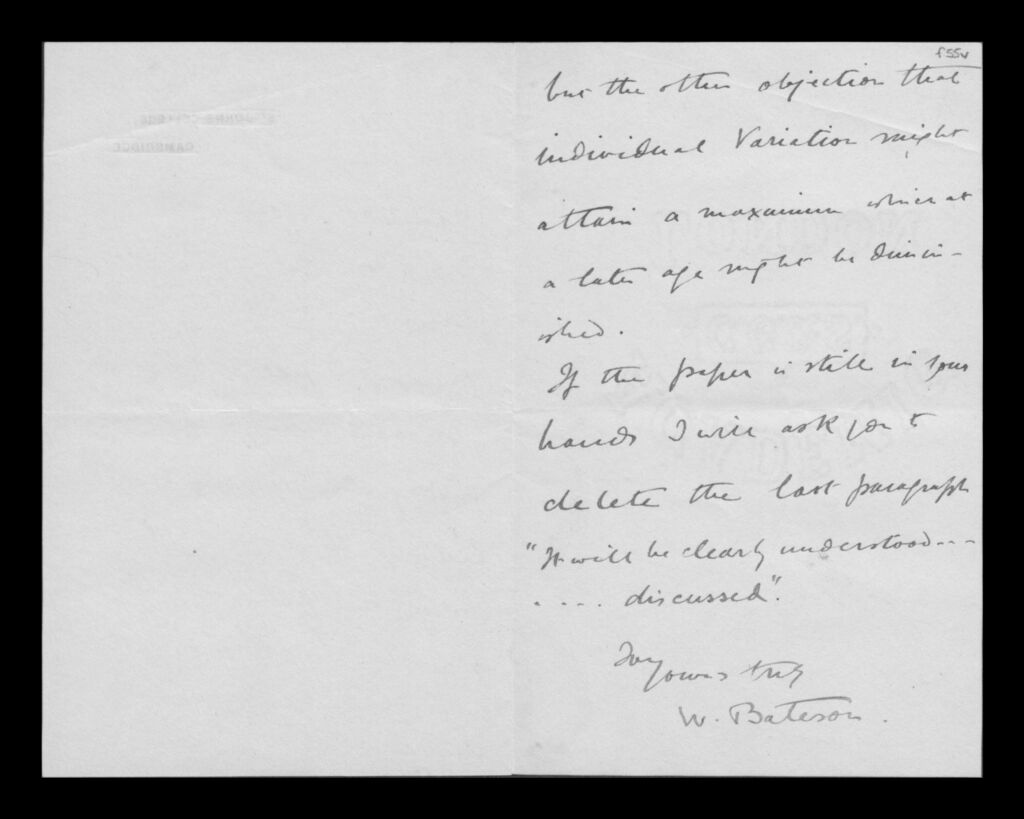 f55v
but the other objection that
individual Variation might
attain a maximum which at
a later age might be dimin-
ished.
If the paper is still in your
hands I will ask you to
delete the last paragraph
"It will be clearly understood---
.... discussed".
yours truly
W. Bateson.
ST JOHN'S COLLEGE,
CAMBRIDGE.